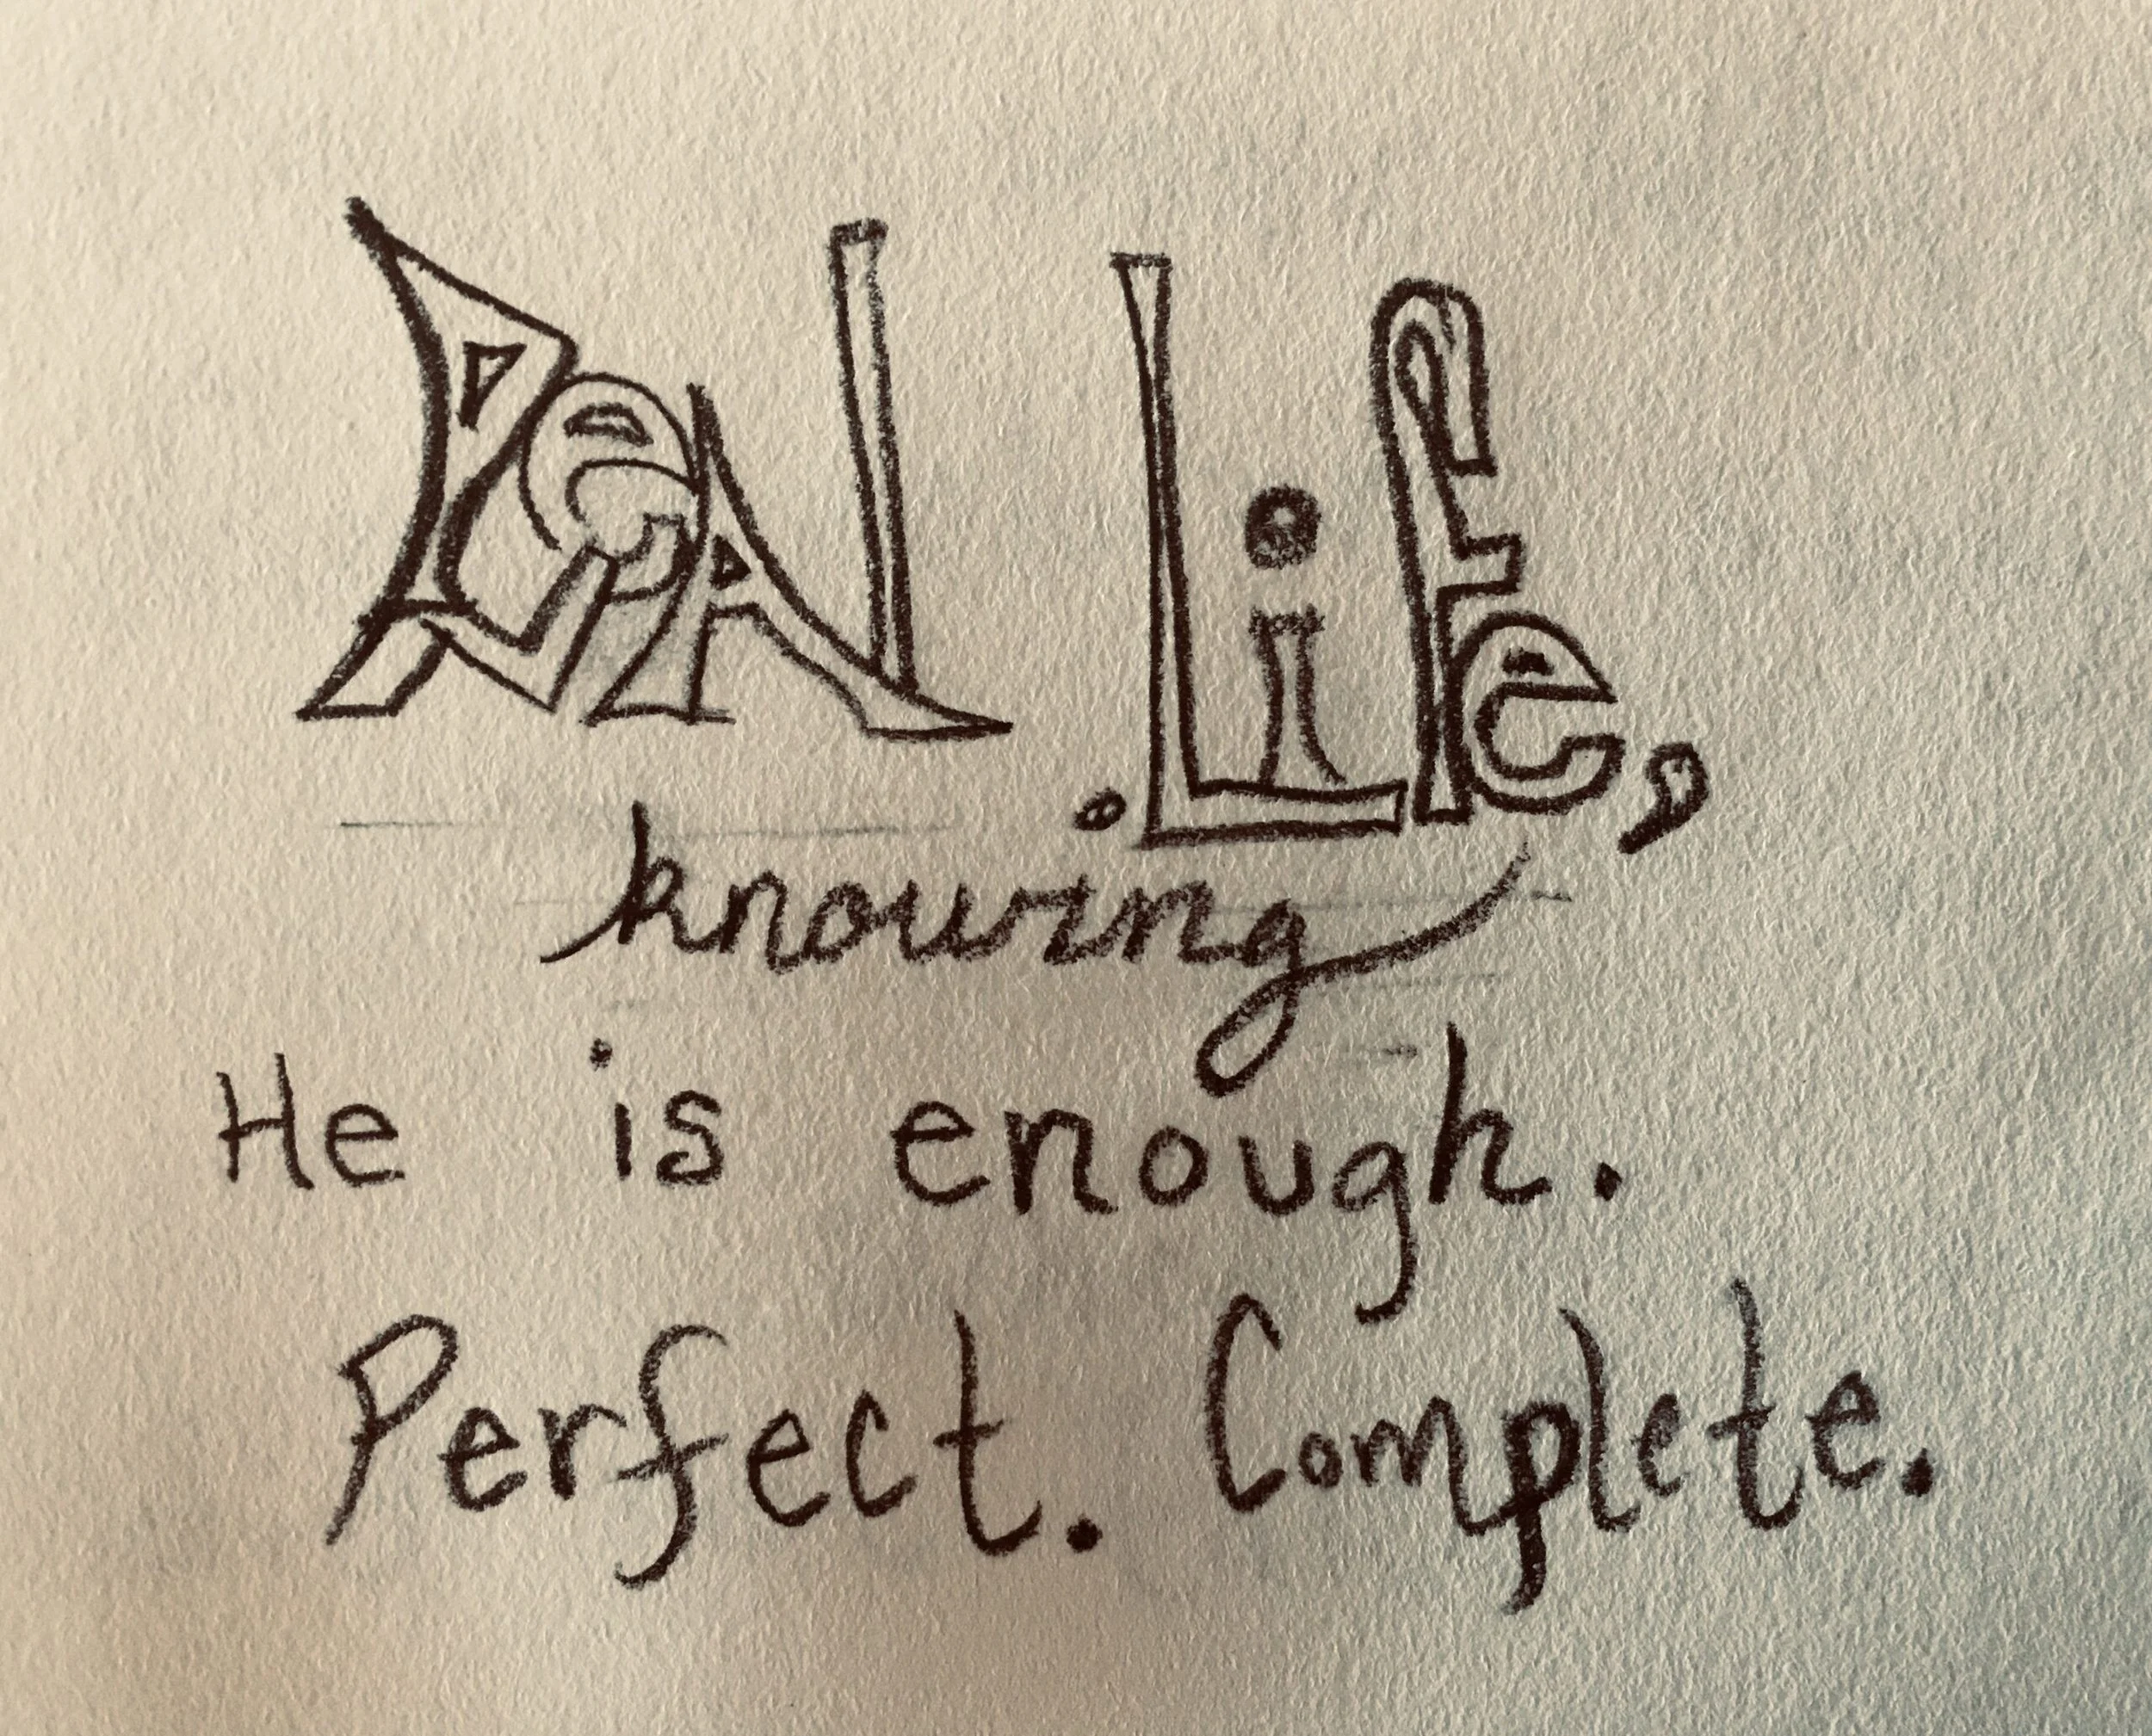 ReAl Life,
knowing
He is enough.
Perfect. Complete.